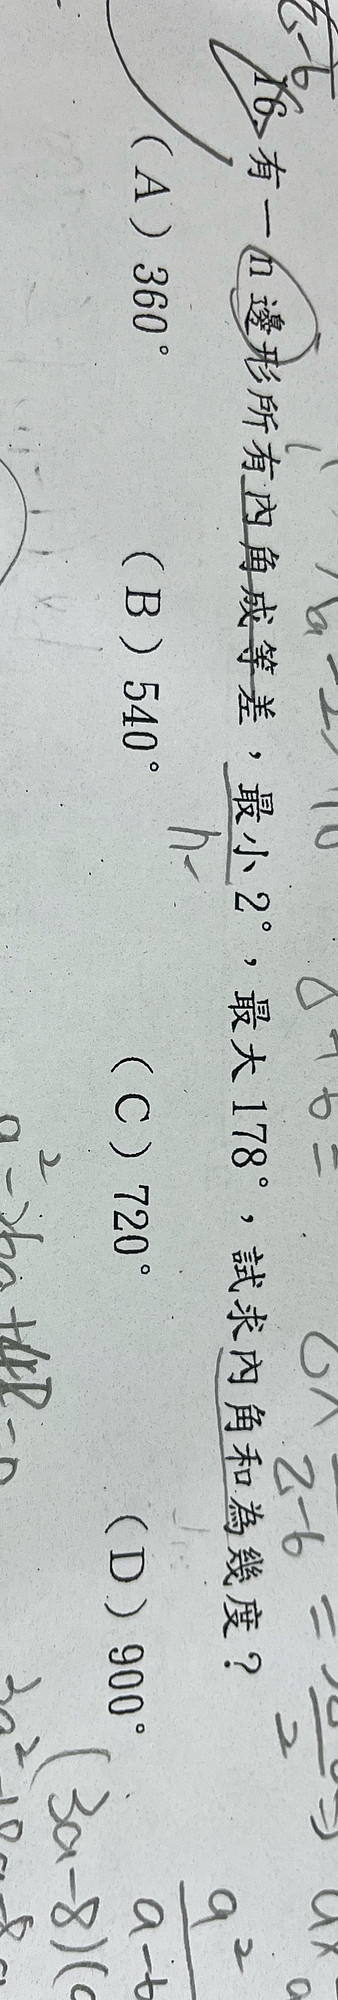 16. 有一n邊形所有內角成等差，最小2°，最大178°，試求內角和為幾度？
（A）360° （B）540° （C）720° （D）900°
2-b
n-
8+b=
2-b=
(3a-8)(
a²
a-b